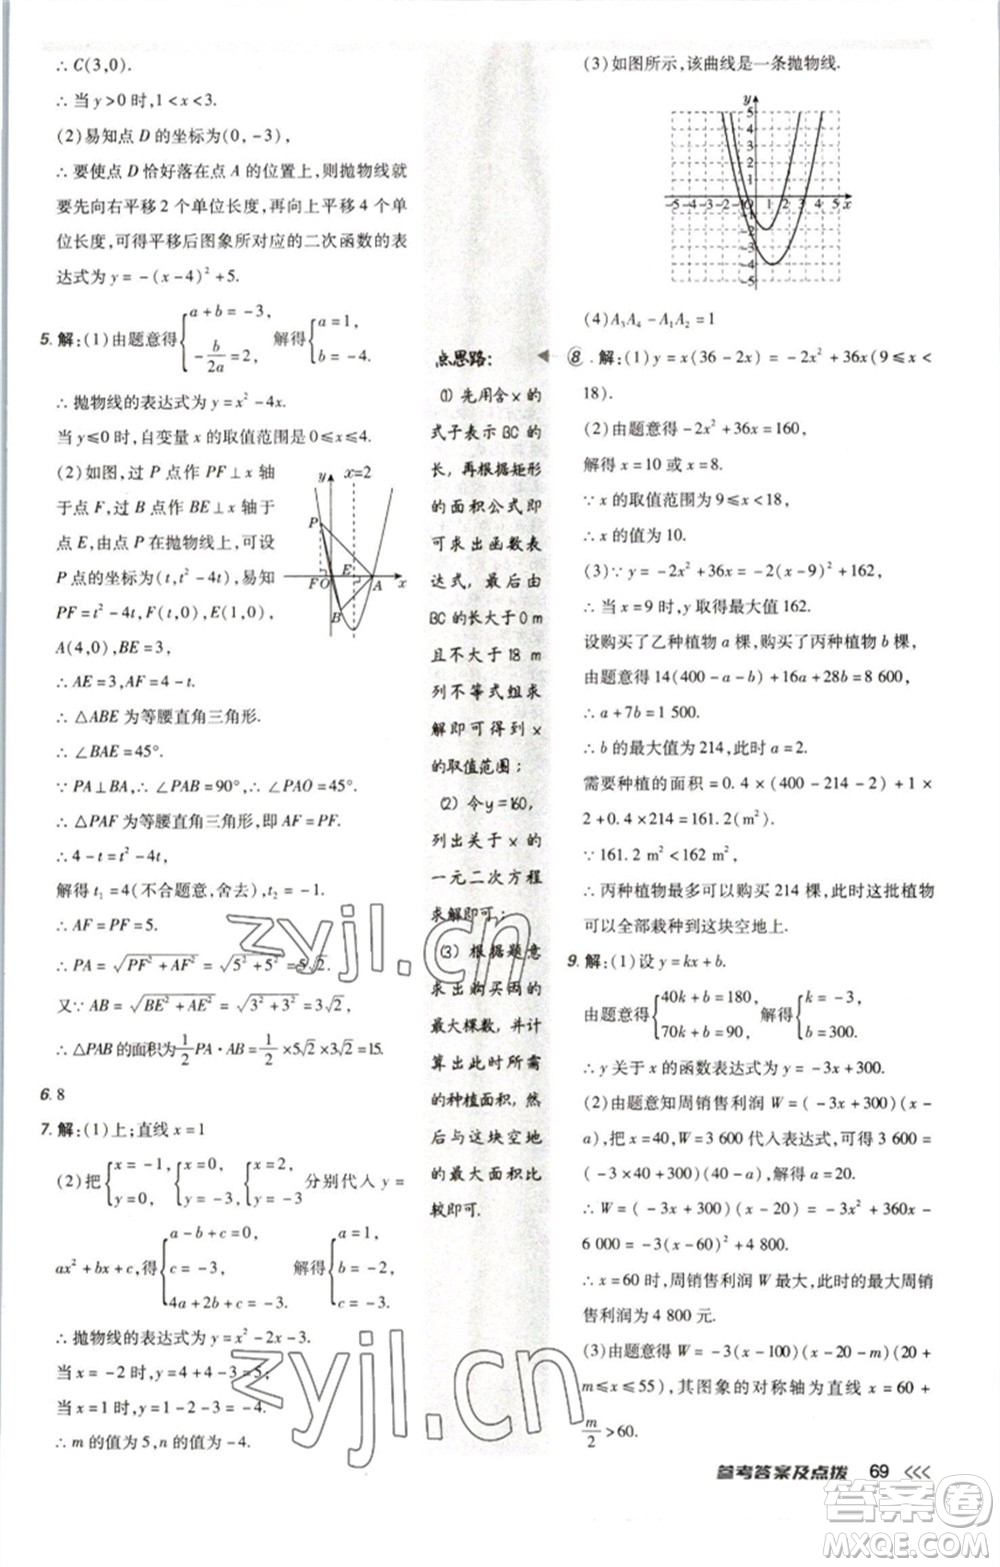 ∴ C(3,0).
∴ 当 y>0 时,1<x<3.
(2)易知点 D 的坐标为(0,-3),
∴ 要使点 D 恰好落在点 A 的位置上,则抛物线就
要先向右平移 2 个单位长度,再向上平移 4 个单
位长度,可得平移后图象所对应的二次函数的表
达式为 y=-(x-4)²+5.
5. 解:(1)由题意得{a+b=-3, -b/2a=2, 解得{a=1, b=-4.
∴ 抛物线的表达式为 y=x²-4x.
当 y≤0 时,自变量 x 的取值范围是 0≤x≤4.
(2)如图,过 P 点作 PF⊥x 轴
于点 F,过 B 点作 BE⊥x 轴于
点 E,由点 P 在抛物线上,可设
P 点的坐标为(t,t²-4t),易知
PF=t²-4t,F(t,0),E(1,0),
A(4,0),BE=3,
y x=2
P
F O E A x
B
∴ AE=3,AF=4-t.
∴ △ABE 为等腰直角三角形.
∴ ∠BAE=45°.
∵ PA⊥BA,∴ ∠PAF=90°-45°=45°.
∴ △PAF 为等腰直角三角形,即 AF=PF.
∴ 4-t=t²-4t,
解得 t₁=4(不合题意,舍去),t₂=-1.
∴ AF=PF=5.
∴ PA=√(PF²+AF²)=√(5²+5²)=5√2.
又∵ AB=√(BE²+AE²)=√(3²+3²)=3√2,
∴ △PAB 的面积为 1/2 PA·AB=1/2×5√2×3√2=15.
6. 8
7. 解:(1)上;直线 x=1
(2)把{x=-1, y=0, {x=0, y=-3, {x=2, y=-3 分别代入 y=
ax²+bx+c,得{a-b+c=0, c=-3, 4a+2b+c=-3, 解得{a=1, b=-2, c=-3.
∴ 抛物线的表达式为 y=x²-2x-3.
当 x=-2 时,y=4+4-3=5;
当 x=1 时,y=1-2-3=-4.
∴ m 的值为 5,n 的值为 -4.
点思路:
(1) 先用含 x 的
式子表示 BC 的
长,再根据矩形
的面积公式即
可求出函数表
达式,最后由
BC 的长大于 0 m
且不大于 18 m
列不等式组求
解即可得到 x
的取值范围;
(2) 令 y=160,
列出关于 x 的
一元二次方程
求解即可;
(3) 根据题意
求出购买丙的
最大棵数,并计
算出此时所需
的种植面积,然
后与这块空地
的最大面积比
较即可.
(3)如图所示,该曲线是一条抛物线.
y
5
4
3
2
1
-5 -4 -3 -2 -1 O 1 2 3 4 5 x
-1
-2
-3
-4
-5
(4)A₃A₄-A₁A₂=1
8. 解:(1)y=x(36-2x)=-2x²+36x(9≤x<
18).
(2)由题意得-2x²+36x=160,
解得 x=10 或 x=8.
∵ x 的取值范围为 9≤x<18,
∴ x 的值为 10.
(3)∵ y=-2x²+36x=-2(x-9)²+162,
∴ 当 x=9 时,y 取得最大值 162.
设购买了乙种植物 a 棵,购买了丙种植物 b 棵,
由题意得 14(400-a-b)+16a+28b=8 600,
∴ a+7b=1 500.
∴ b 的最大值为 214,此时 a=2.
需要种植的面积=0.4×(400-214-2)+1×
2+0.4×214=161.2(m²).
∵ 161.2 m²<162 m²,
∴ 丙种植物最多可以购买 214 棵,此时这批植物
可以全部栽种到这块空地上.
9. 解:(1)设 y=kx+b.
由题意得{40k+b=180, 70k+b=90, 解得{k=-3, b=300.
∴ y 关于 x 的函数表达式为 y=-3x+300.
(2)由题意知周销售利润 W=(-3x+300)(x-
a),把 x=40,W=3 600 代入表达式,可得 3 600=
(-3×40+300)(40-a),解得 a=20.
∴ W=(-3x+300)(x-20)=-3x²+360x-
6 000=-3(x-60)²+4 800.
∴ x=60 时,周销售利润 W 最大,此时最大周销
售利润为 4 800 元.
(3)由题意得 W=-3(x-100)(x-20-m)(20+
m≤x≤55),其图象的对称轴为直线 x=60+
m/2>60.
参考答案及点拨 69
zyjl.cn
zyjl.cn
答案圈
MXQE.COM